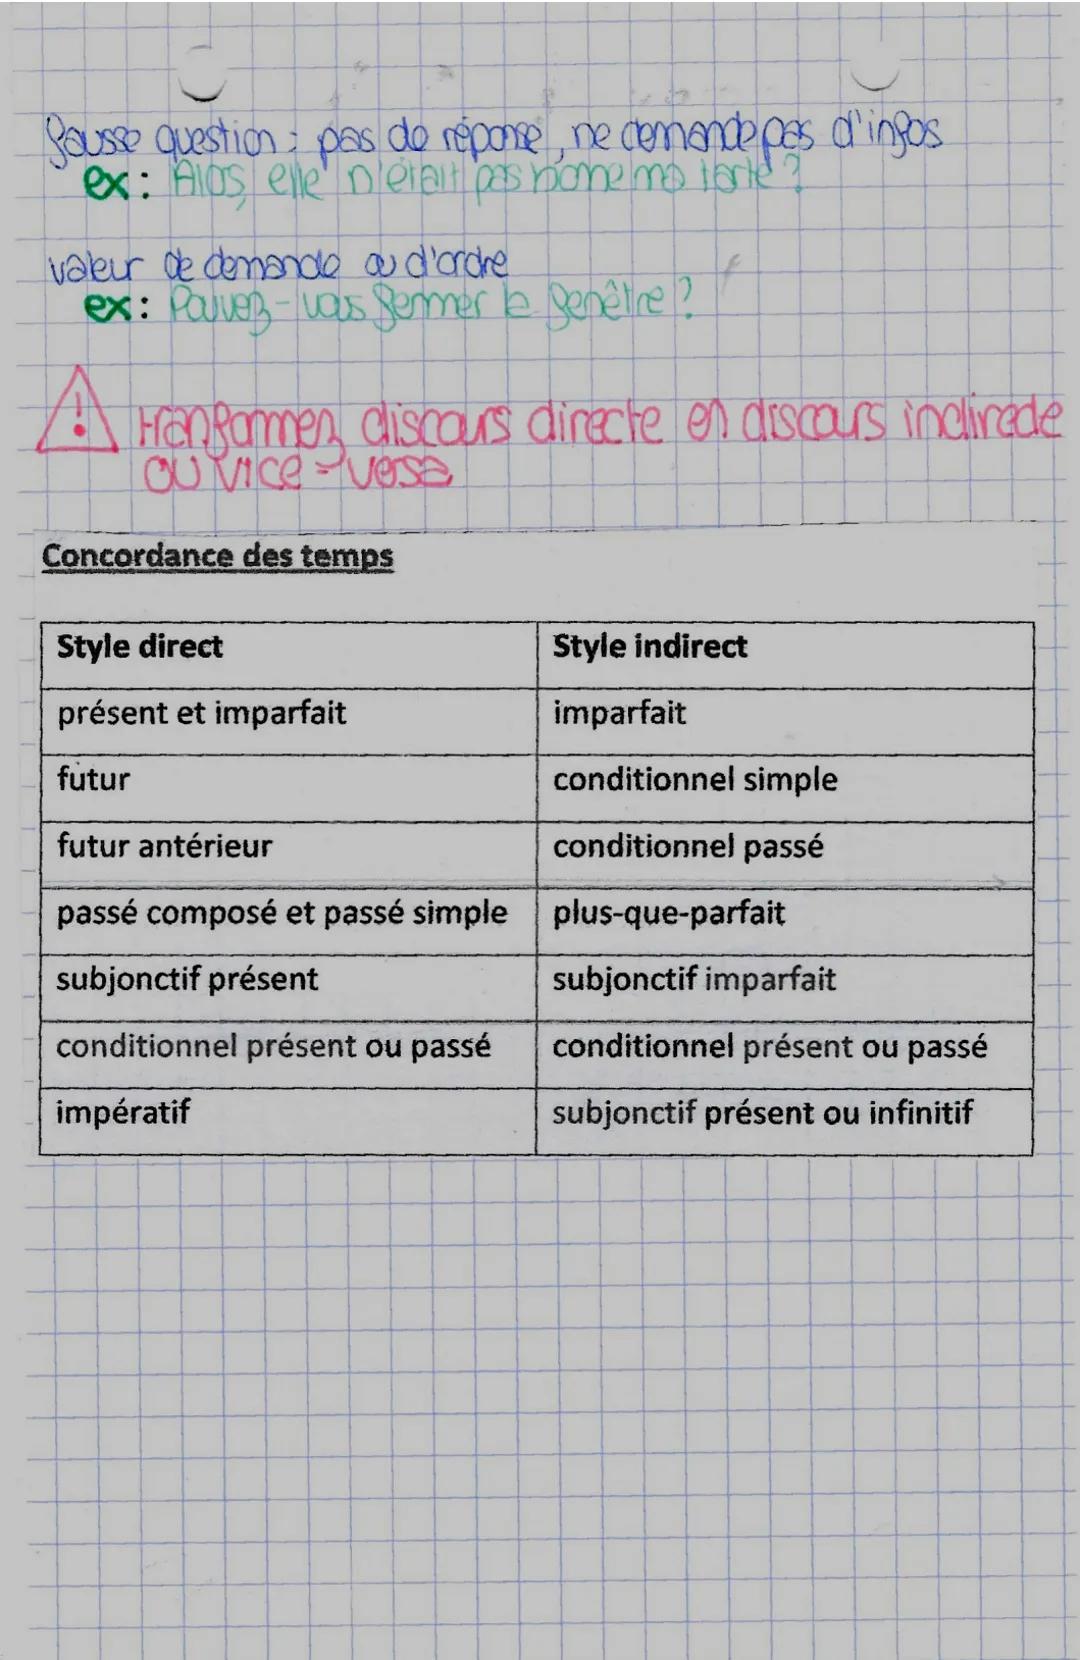 fausse question : pas de réponse, ne demande pas d'infos
ex : Alos, elle n'était pas bonne ma tarte ?
valeur de demande ou d'ordre
ex : Pouvez-vous fermer la fenêtre ?
! tranformez discours directe en discours indirecte
ou vice-versa
Concordance des temps
Style direct Style indirect
présent et imparfait imparfait
futur conditionnel simple
futur antérieur conditionnel passé
passé composé et passé simple plus-que-parfait
subjonctif présent subjonctif imparfait
conditionnel présent ou passé conditionnel présent ou passé
impératif subjonctif présent ou infinitif